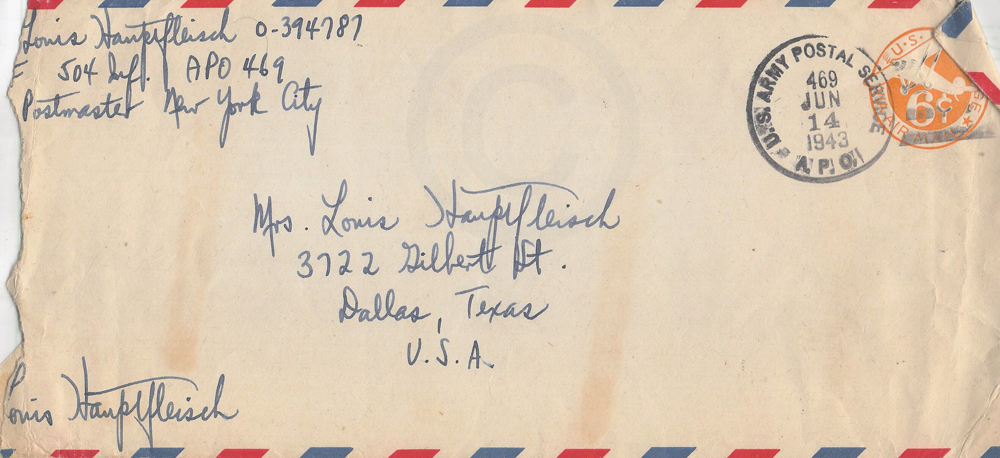 Louis Hauptfleisch O-394787
F 504 Inf. APO 469
Postmaster New York City
U.S. ARMY POSTAL SERVICE
469
JUN
14
1943
A.P.O.
U.S.
6¢
AIR MAIL
Mrs. Louis Hauptfleisch
3722 Gilbert St.
Dallas, Texas
U.S.A.
Louis Hauptfleisch